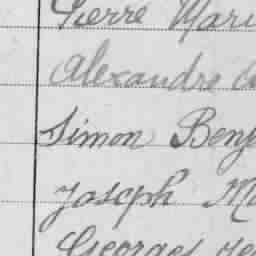 Pierre Mari
Alexandre
Simon Benj
Joseph M
Georges